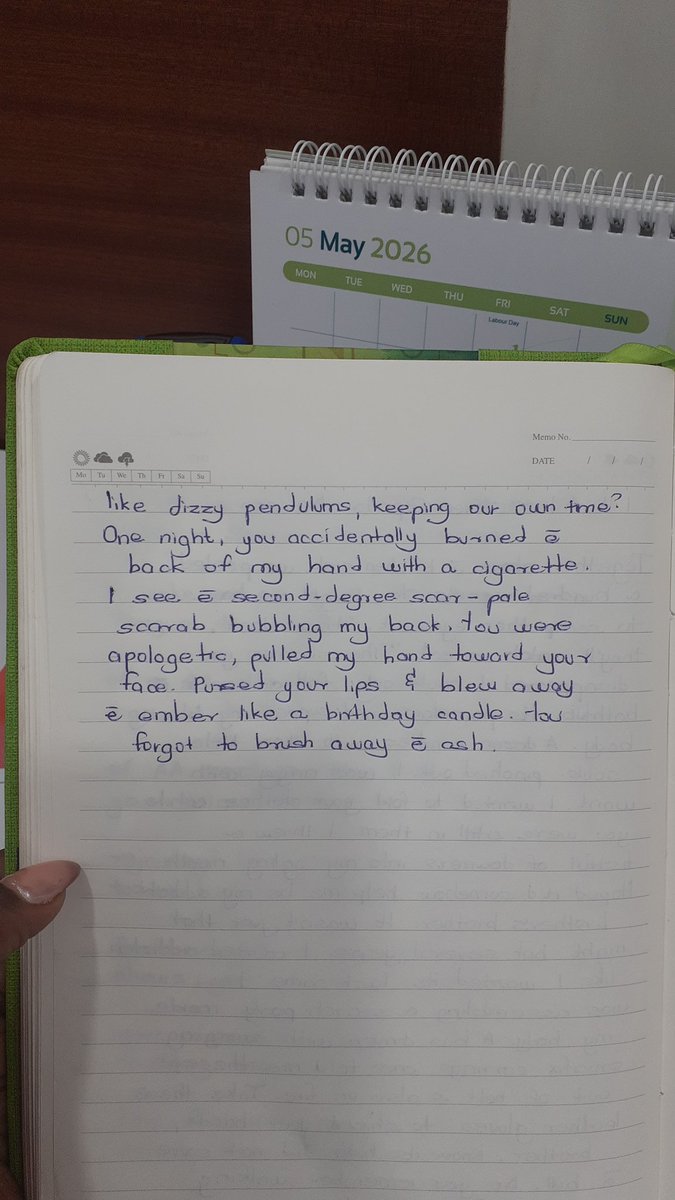 05 May 2026
MON TUE WED THU FRI SAT SUN
Labour Day
1
Memo No.
DATE / / /
Mo Tu We Th Fr Sa Su
like dizzy pendulums, keeping our own time?
One night, you accidentally burned ē
back of my hand with a cigarette.
I see ē second-degree scar - pale
scarab bubbling my back. You were
apologetic, pulled my hand toward your
face. Pursed your lips & blew away
ē ember like a birthday candle. You
forgot to brush away ē ash.